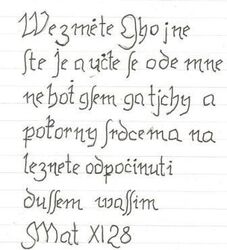 Wezměte Gho jne
ſte je a učte ſe ode mne
neboť gſem ga tjchy a
pokorny ſrdcem a na
leznete odpočinuti
duſſem waſſim
Mat XI 28